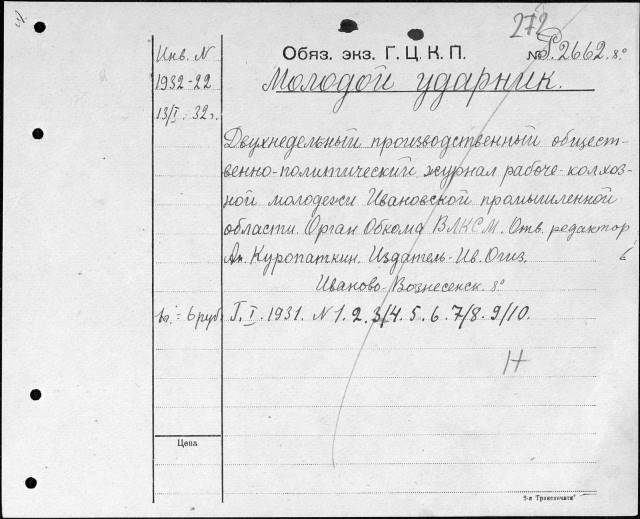 272
Обяз. экз. Г. Ц. К. П. № P. 2662. 8°
Инв. N
1932-22
13/I 32 г.
Молодой ударник.
Двухнедельный производственный общест-
венно-политический журнал рабоче-колхоз-
ной молодежи Ивановской промышленной
области. Орган Обкома ВЛКСМ. Отв. редактор
Ан. Куропаткин. Издатель-Ив. Огиз.
Иваново-Вознесенск. 8°
6 руб. Г. I. 1931. N 1. 2. 3/4. 5. 6. 7/8. 9/10.
Н
Цена
5-я „Транспечати"